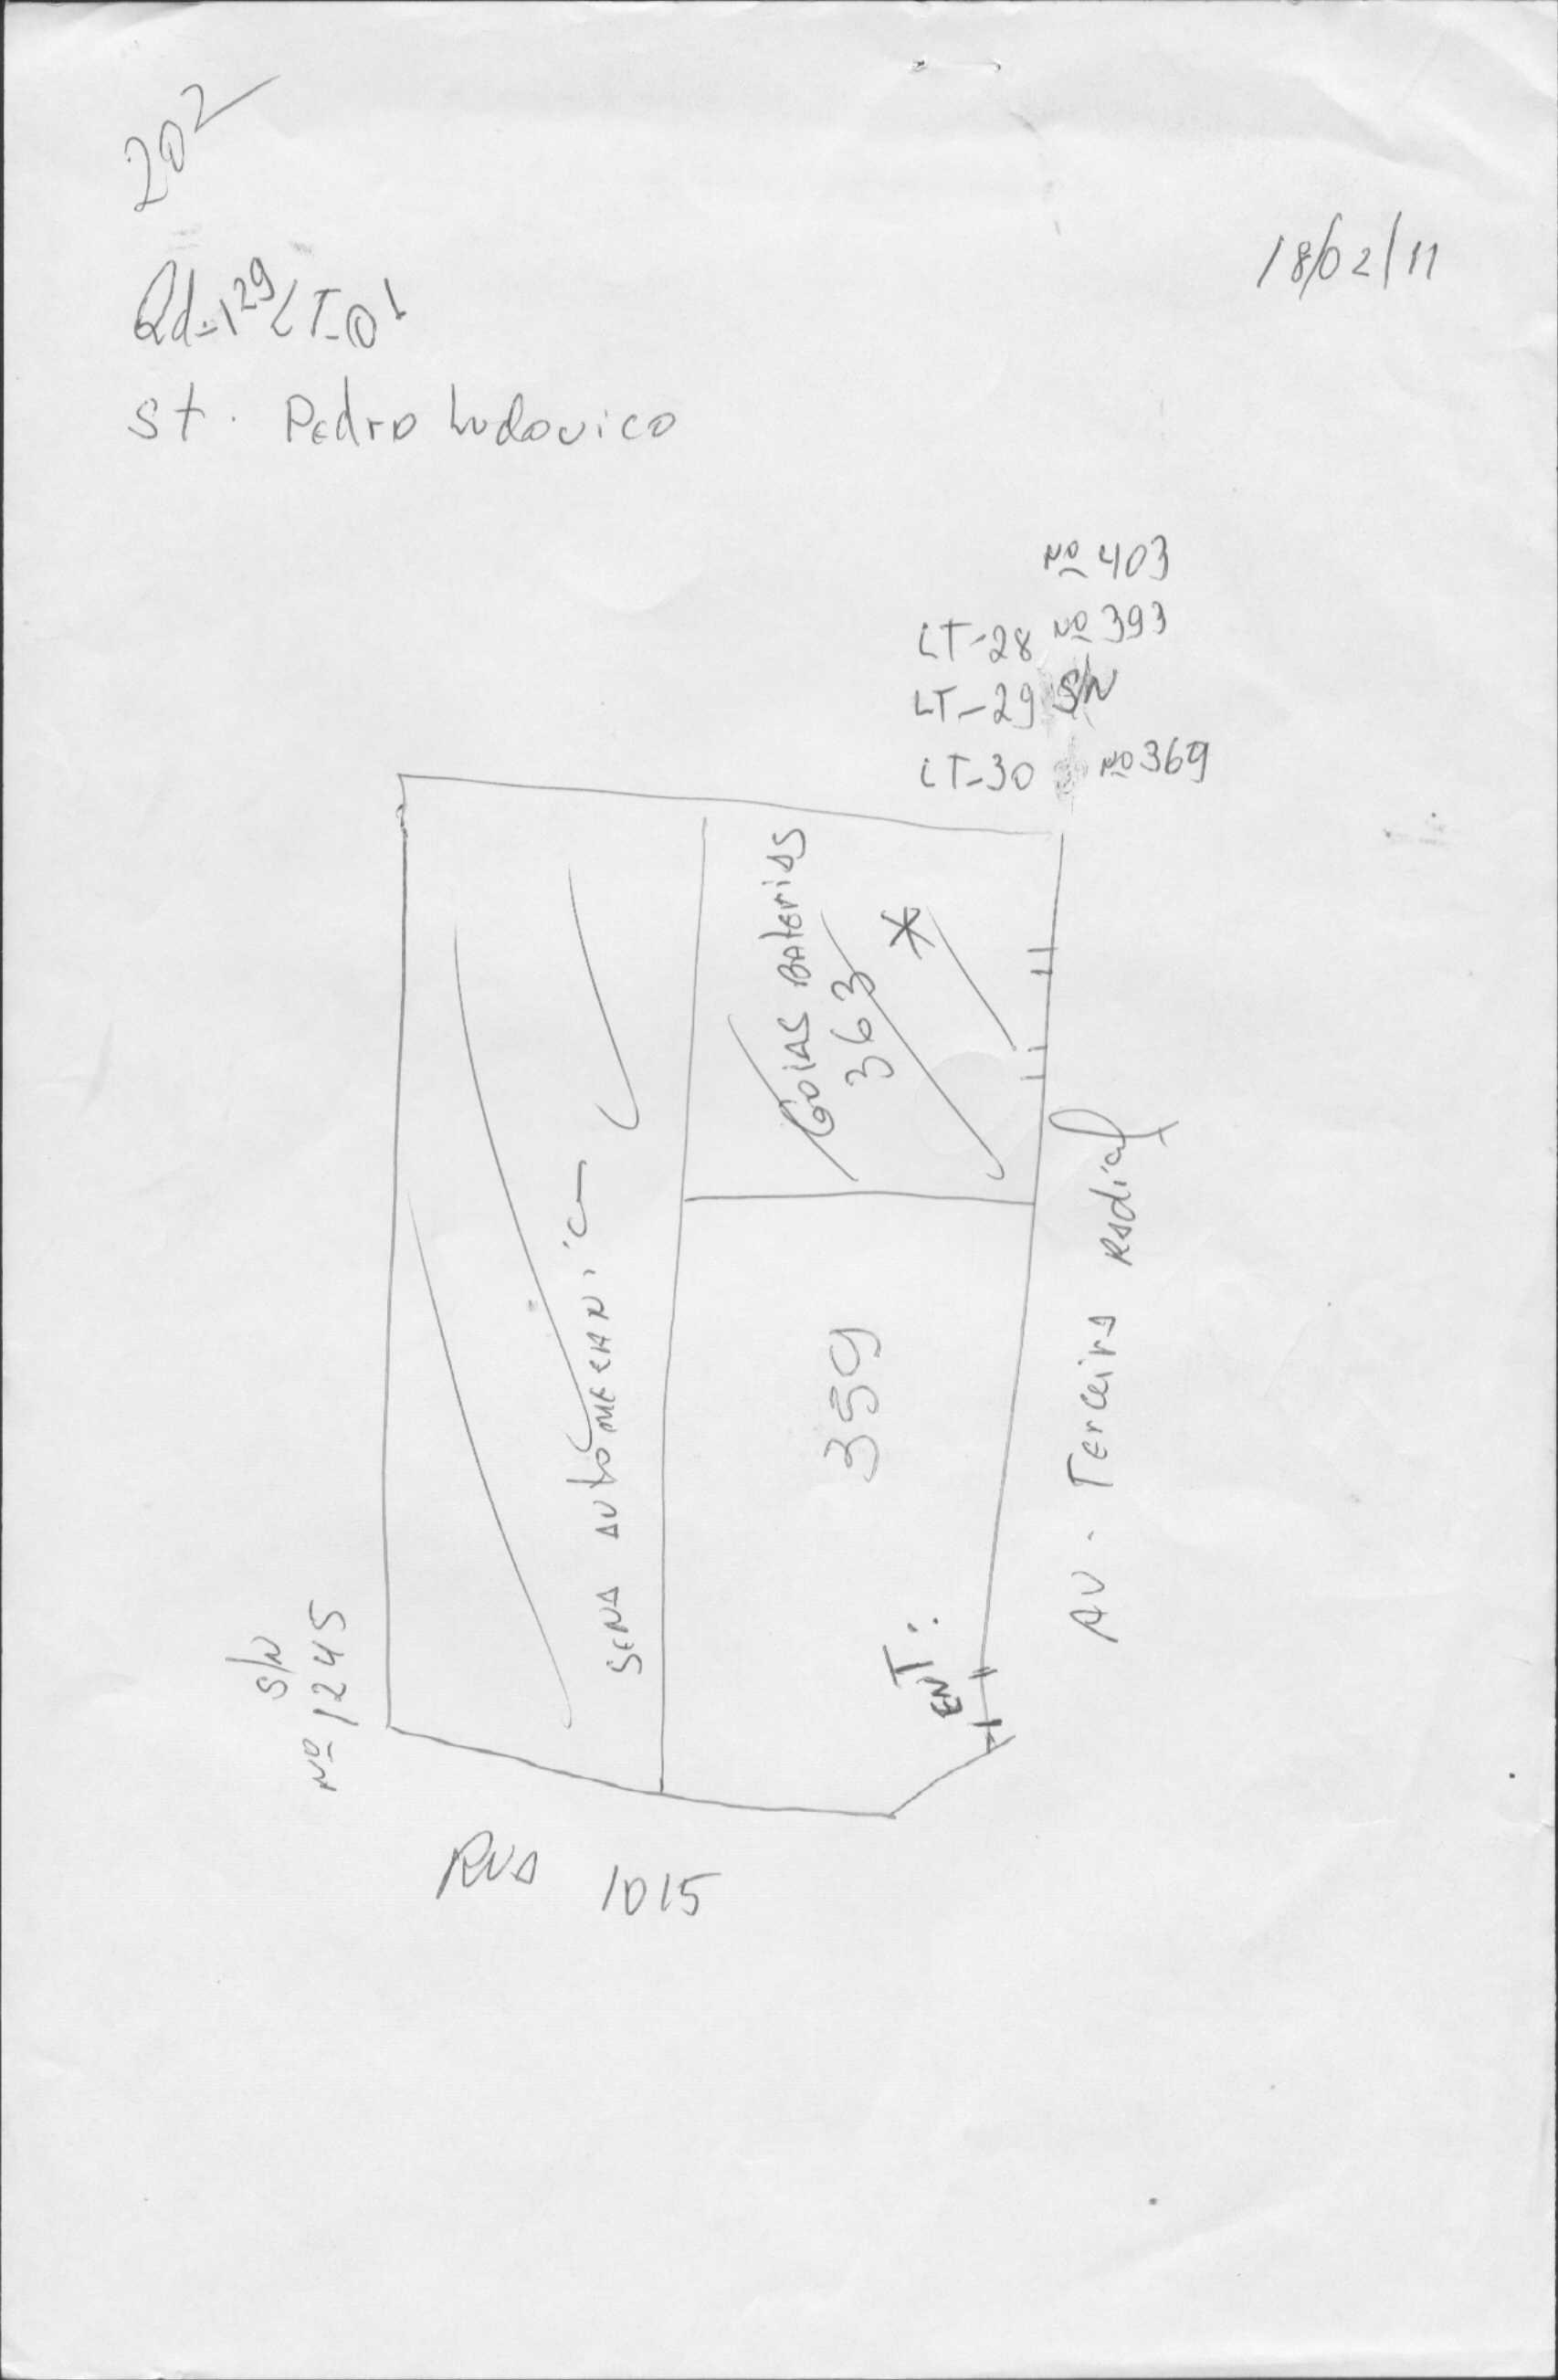 202
18/02/11
Qd-129 LT-01
St. Pedro Ludovico
Nº 403
LT-28 Nº 393
LT-29 S/N
LT-30 Nº 369
GOIAS BATERIAS
363
*
SENA AUTOMECANIC
359
ENT:
AV. Terceira Radial
S/N
Nº 1245
RUA 1015